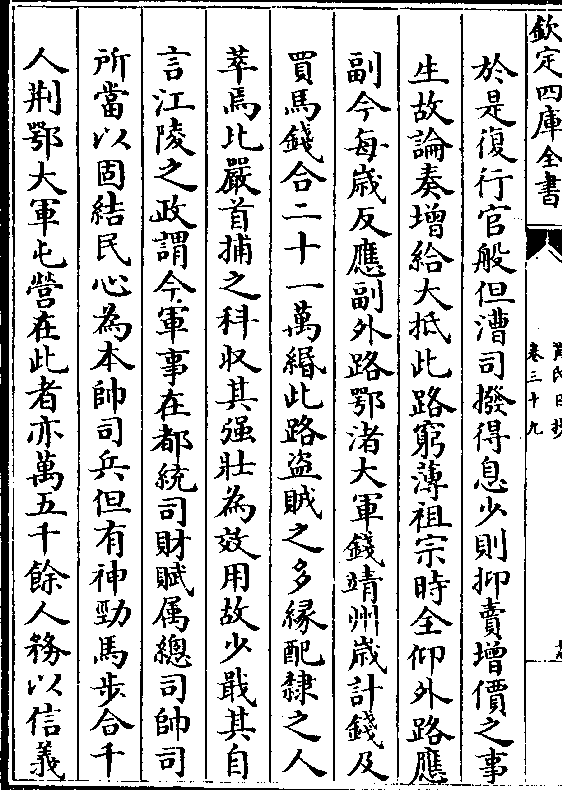 欽定四庫全書
卷三十九
於是復行官般但漕司撥得息少則抑賣增價之事
生故論奏增給大抵此路窮薄祖宗時全仰外路應
副今每歳反應副外路鄂渚大軍錢靖州歳計錢及
買馬錢合二十一萬緡此路盗賊之多縁配隸之人
萃焉比嚴首捕之科収其强壯為效用故少戢其自
言江陵之政謂今軍事在都統司財賦属總司帥司
所當以固結民心為本帥司兵但有神勁馬步合千
人荆鄂大軍屯營在此者亦萬五千餘人務以信義